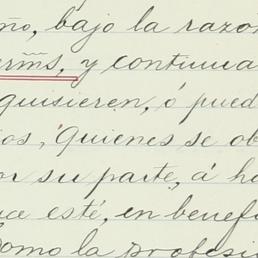 ño, bajo la razon
erm̃s, y continua
quisieren, ó pued
ios, quienes se ob
or su parte, á ha
ue esté, en benef
Como la profesi